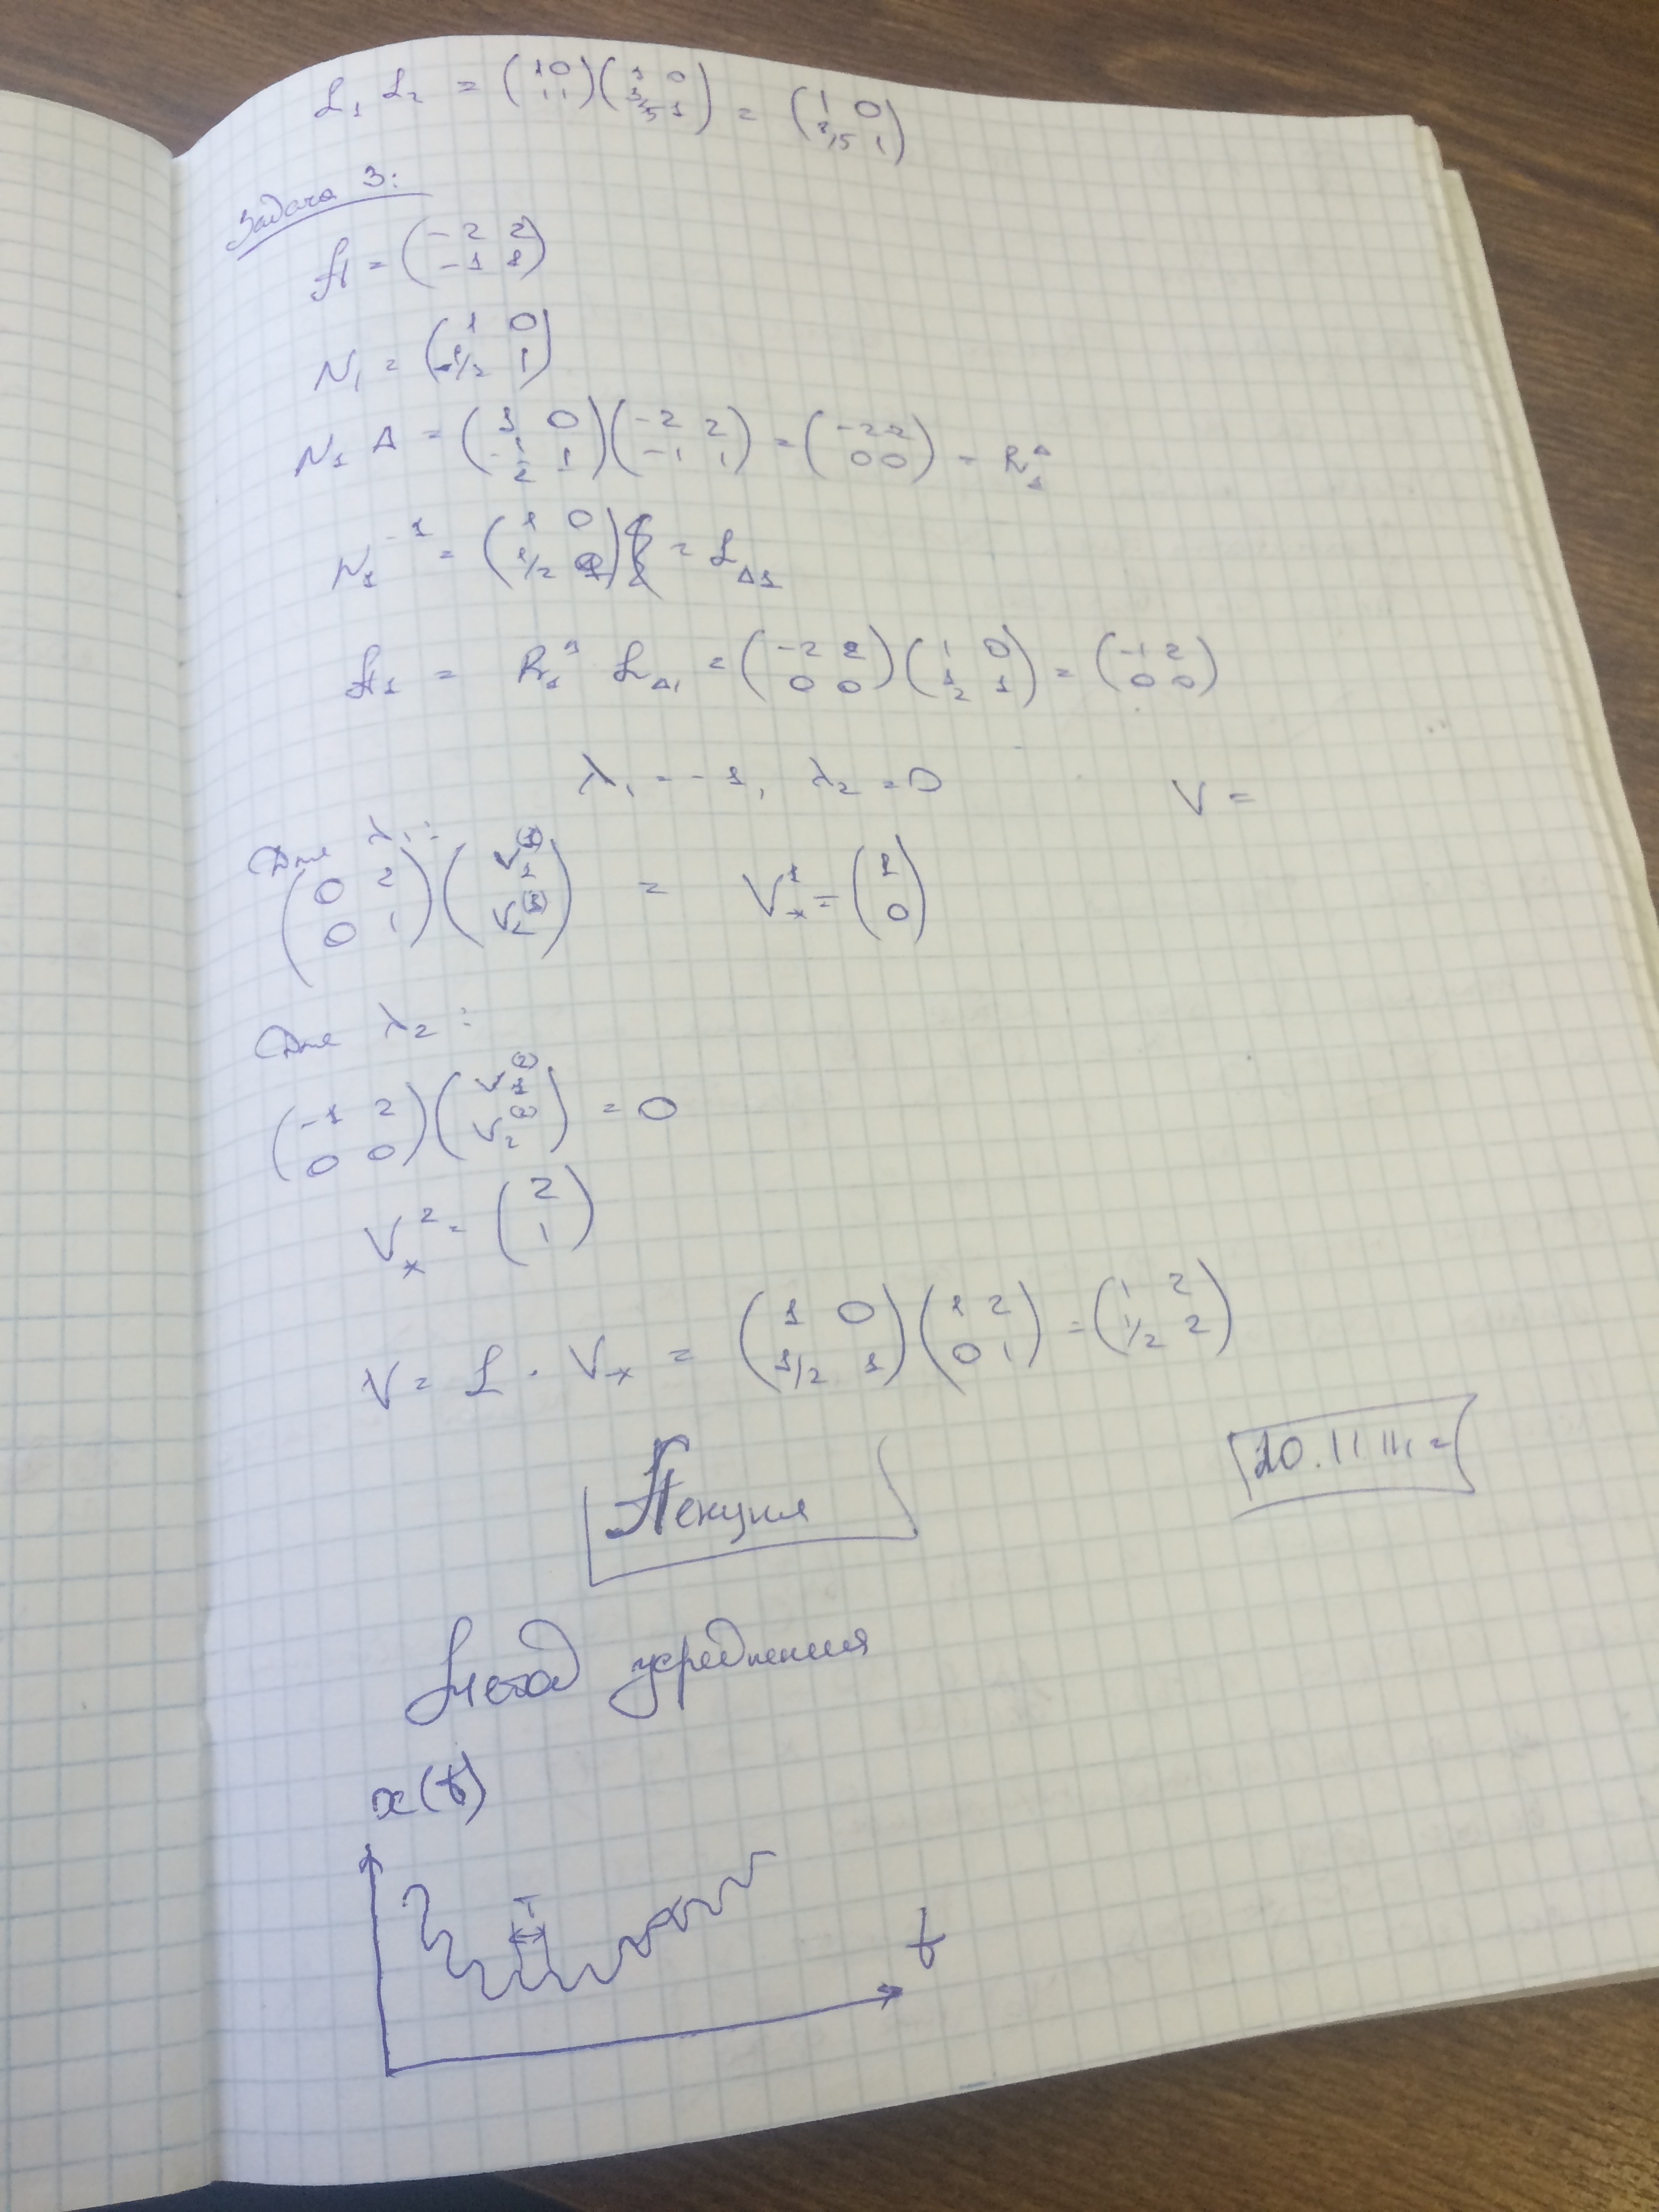 L₁ L₂ = (1 0; 1 1)(1 0; 3/5 1) = (1 0; 8/5 1)
Задача 3:
A = (-2 2; -1 1)
N₁ = (1 0; -1/2 1)
N₁ A = (1 0; -1/2 1)(-2 2; -1 1) = (-2 2; 0 0) = R₁^Δ
N₁⁻¹ = (1 0; 1/2 1) = L_Δ1
A₁ = R₁^Δ L_Δ1 = (-2 2; 0 0)(1 0; 1/2 1) = (-1 2; 0 0)
λ₁ = -1, λ₂ = 0
V =
Для λ₁:
(0 2; 0 1)(V₁⁽¹⁾; V₂⁽¹⁾) = V*¹ = (1; 0)
Для λ₂:
(-1 2; 0 0)(V₁⁽²⁾; V₂⁽²⁾) = 0
V*² = (2; 1)
V = L · V* = (1 0; 1/2 1)(1 2; 0 1) = (1 2; 1/2 2)
Лекция
Метод усреднения
x(t)
T
t